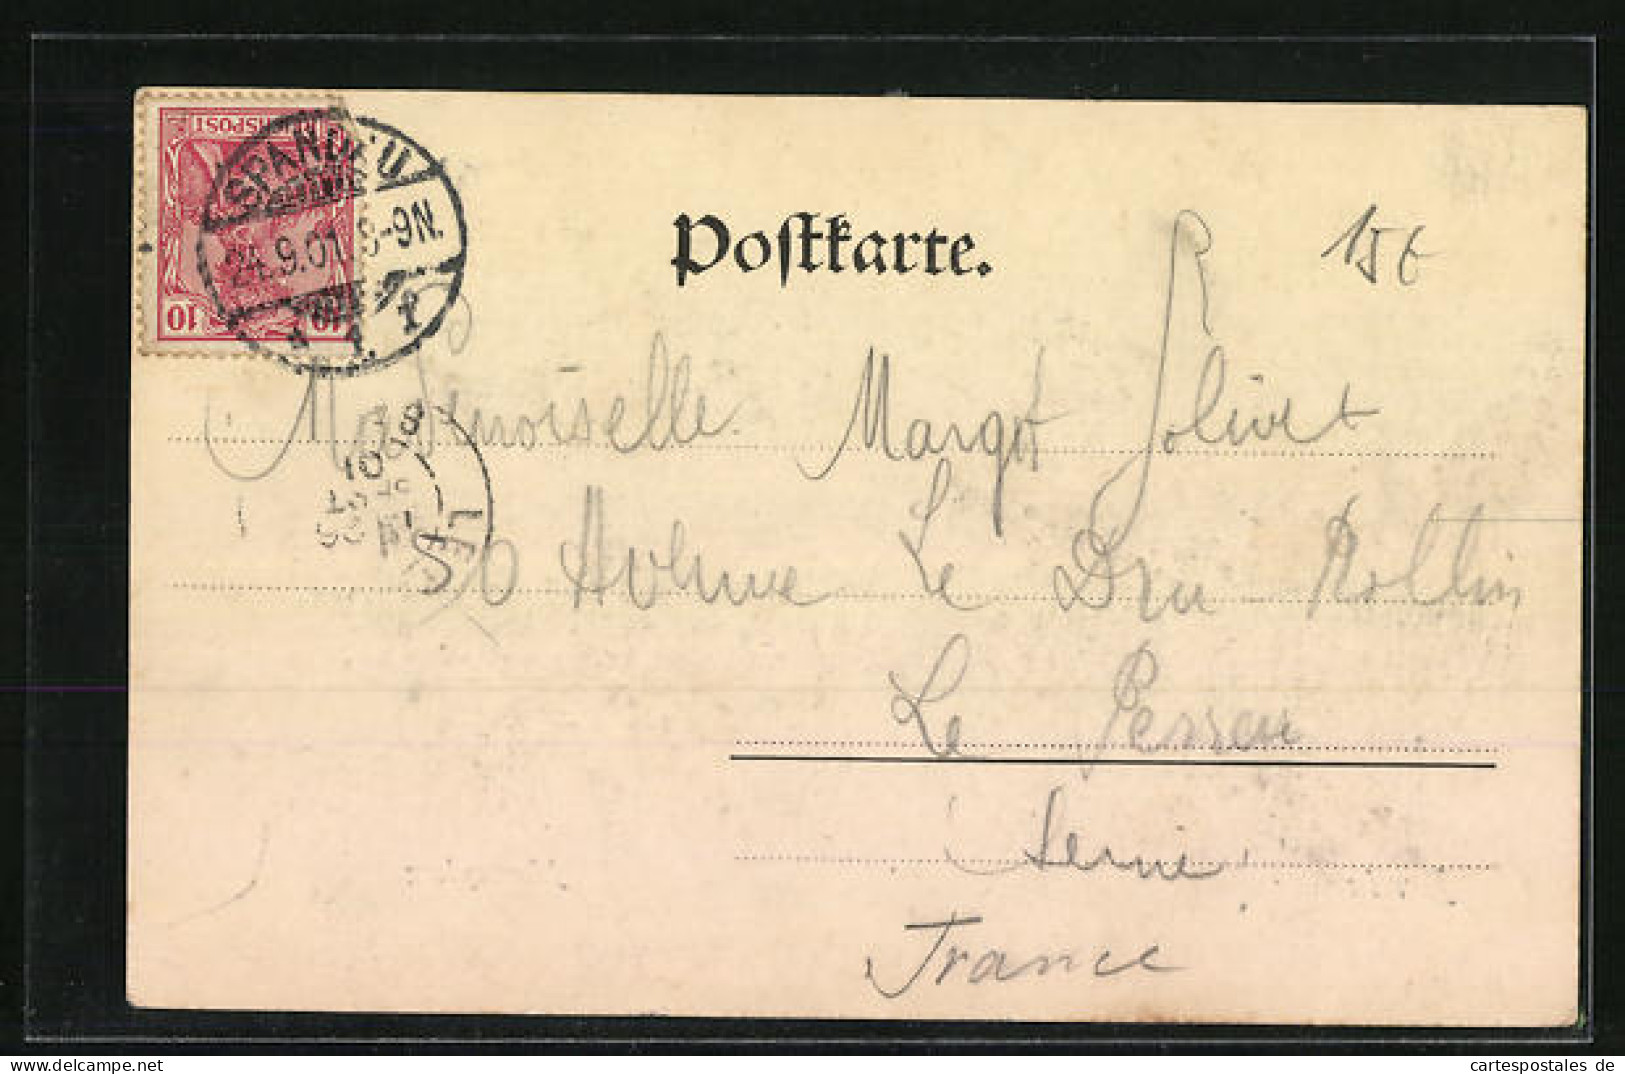 REICHSPOST
10 10
SPANDAU
24.9.01 8-9N.
* 1 f
Postkarte.
15€
Mademoiselle Margot Jolivet
50 Avenue Le Dru Rollin
Le Perreux
Seine
France
LE PE
26
SEPT
01
akpool.de
cartespostales de